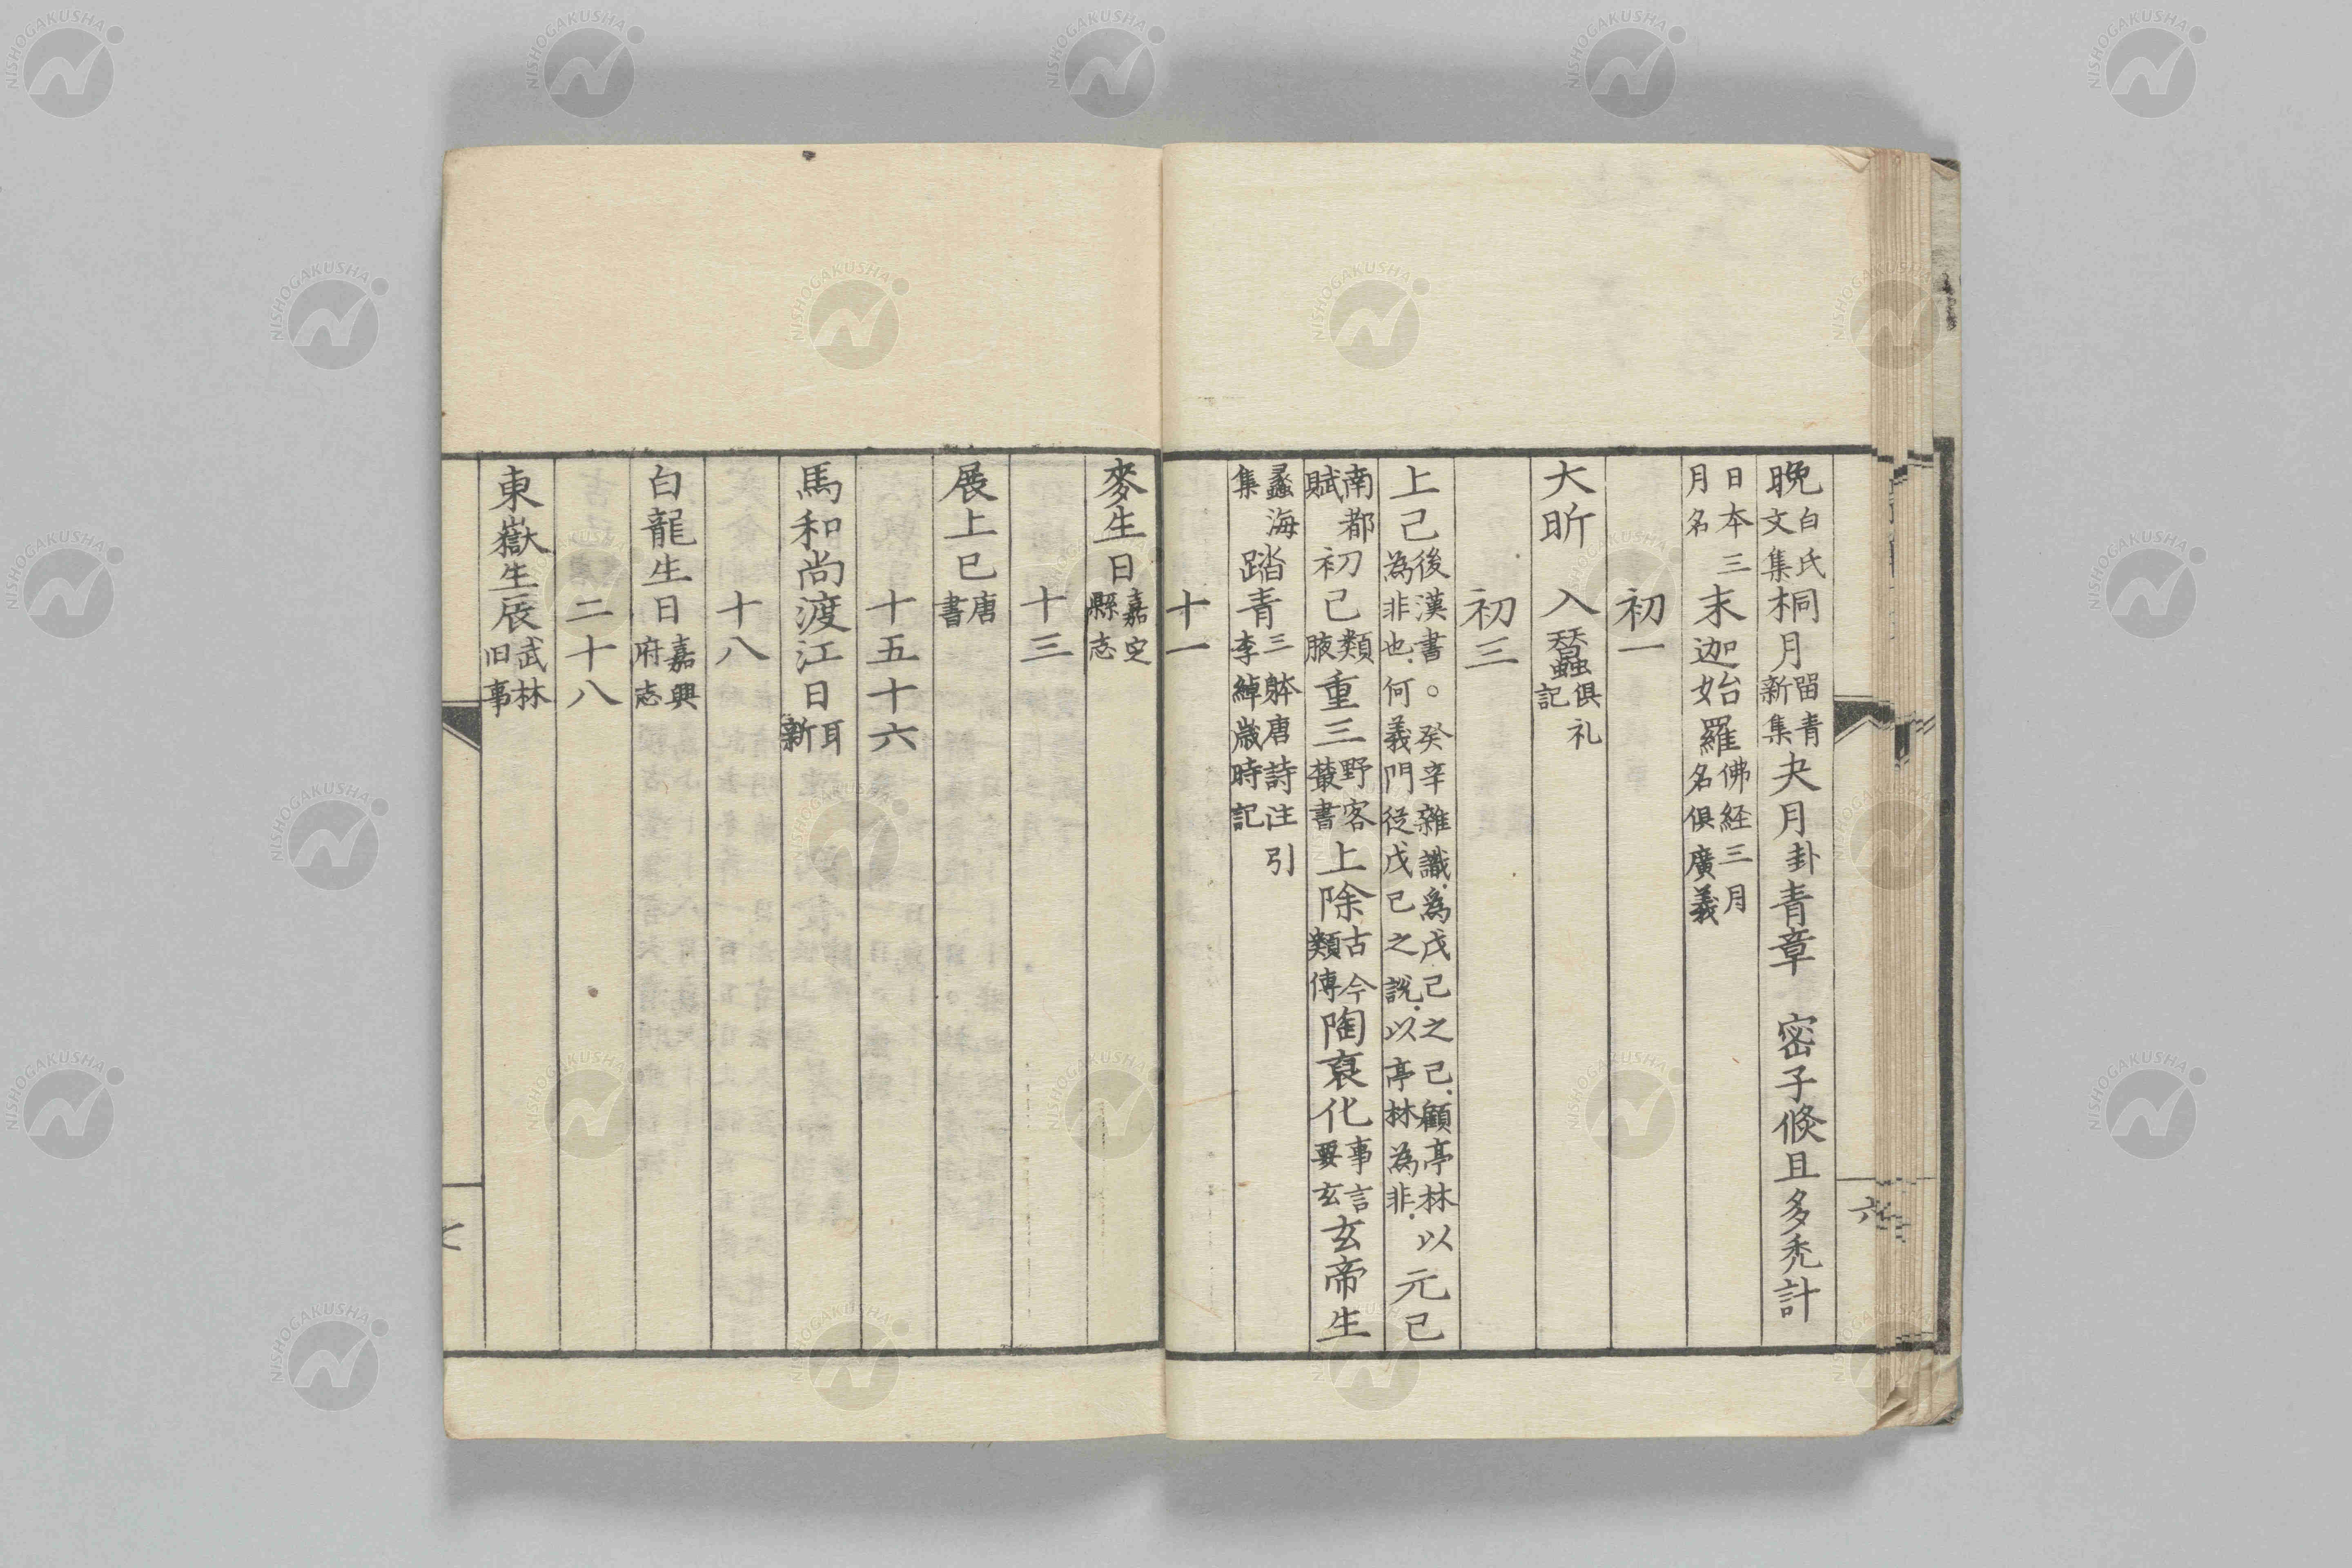 晩白氏文集桐月留青新集夬月卦青章　密子倏且多禿計
日本三月名末迦始羅佛経三月名俱廣義
初一
大昕　入蠶俱礼記
初三
上己後漢書。癸辛雜識為戊己之己顧亭林以為非也何義門従戊己之說以亭林為非元己
南都賦初己類腋重三野客叢書上除古今類傳陶裒化事言要玄玄帝生
蠡海集踏青三躰唐詩注引李綽歳時記
十一
麥生日嘉定縣志
十三
展上巳唐書
十五十六
馬和尚渡江日耳新
十八
白龍生日嘉興府志
二十八
東嶽生辰武林旧事
六
NISHOGAKUSHA